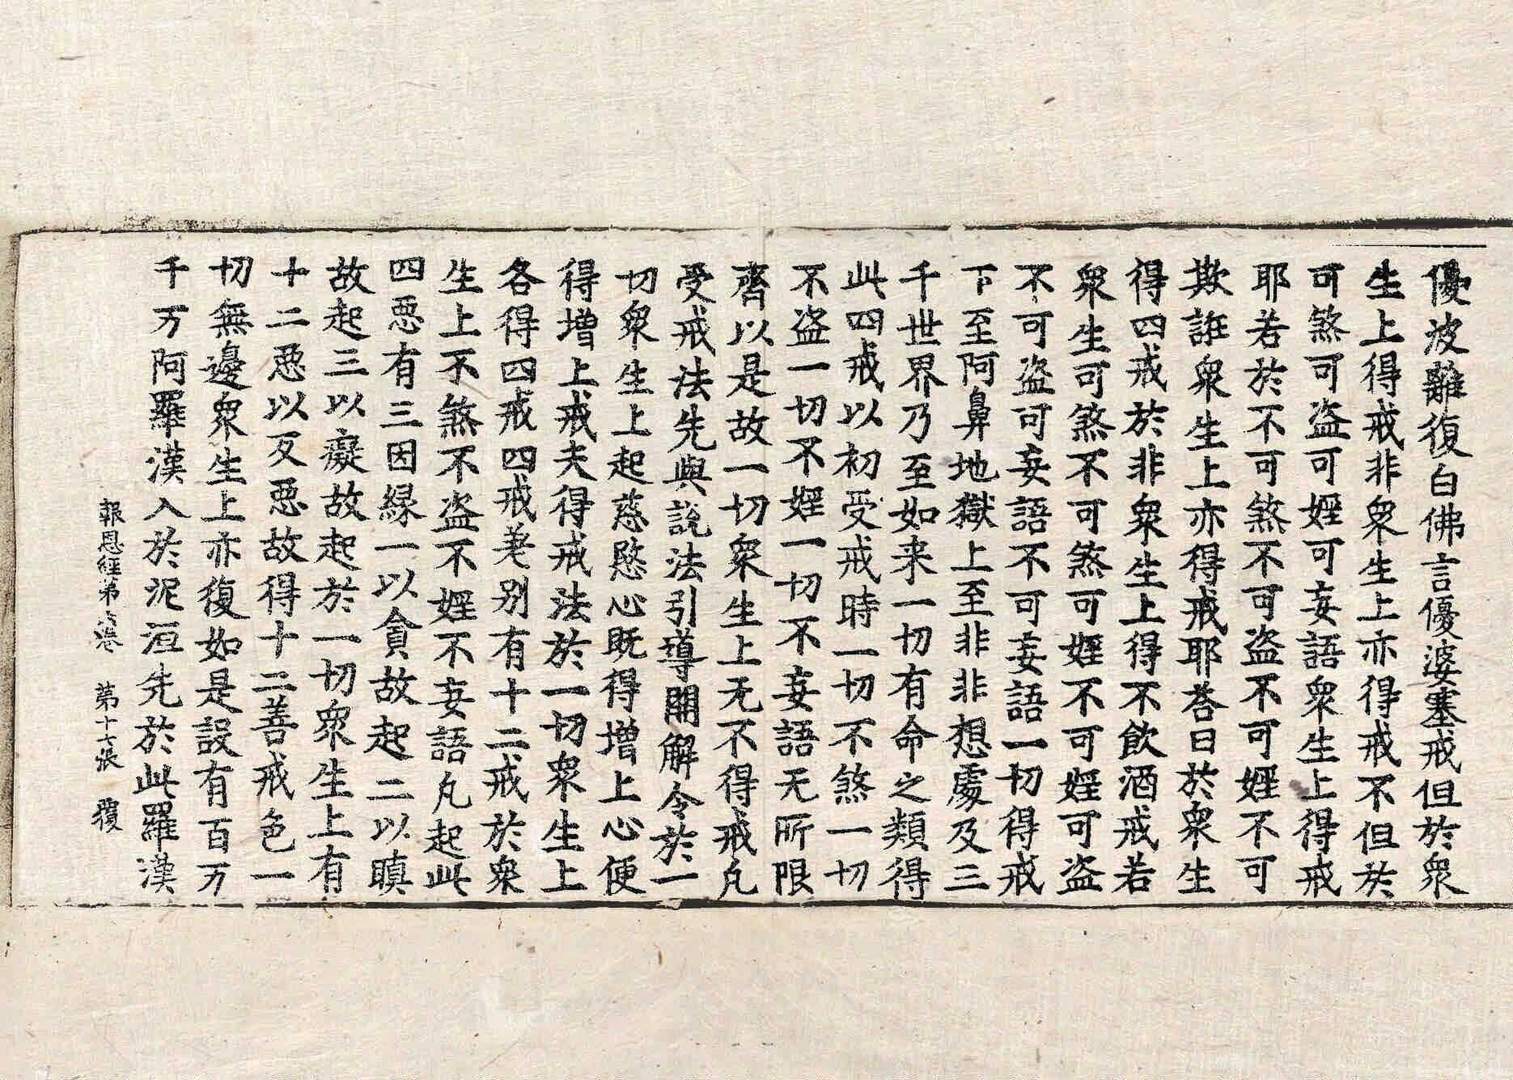 優波離復白佛言優婆塞戒但於衆
生上得戒非衆生上亦得戒不但於
可煞可盗可婬可妄語衆生上得戒
耶若於不可煞不可盗不可婬不可
欺誑衆生上亦得戒耶荅曰於衆生
得四戒於非衆生上得不飲酒戒若
衆生可煞不可煞可婬不可婬可盗
不可盗可妄語不可妄語一切得戒
下至阿鼻地獄上至非非想處及三
千世界乃至如来一切有命之類得
此四戒以初受戒時一切不煞一切
不盗一切不婬一切不妄語无所限
齊以是故一切衆生上无不得戒凡
受戒法先與說法引導開解令於一
切衆生上起慈愍心旣得增上心便
得增上戒夫得戒法於一切衆生上
各得四戒四戒差别有十二戒於衆
生上不煞不盗不婬不妄語凡起此
四惡有三因緣一以貪故起二以瞋
故起三以癡故起於一切衆生上有
十二惡以反惡故得十二善戒色一
切無邊衆生上亦復如是設有百万
千万阿羅漢入於泥洹先於此羅漢
報恩經第六卷 第十七張 覆